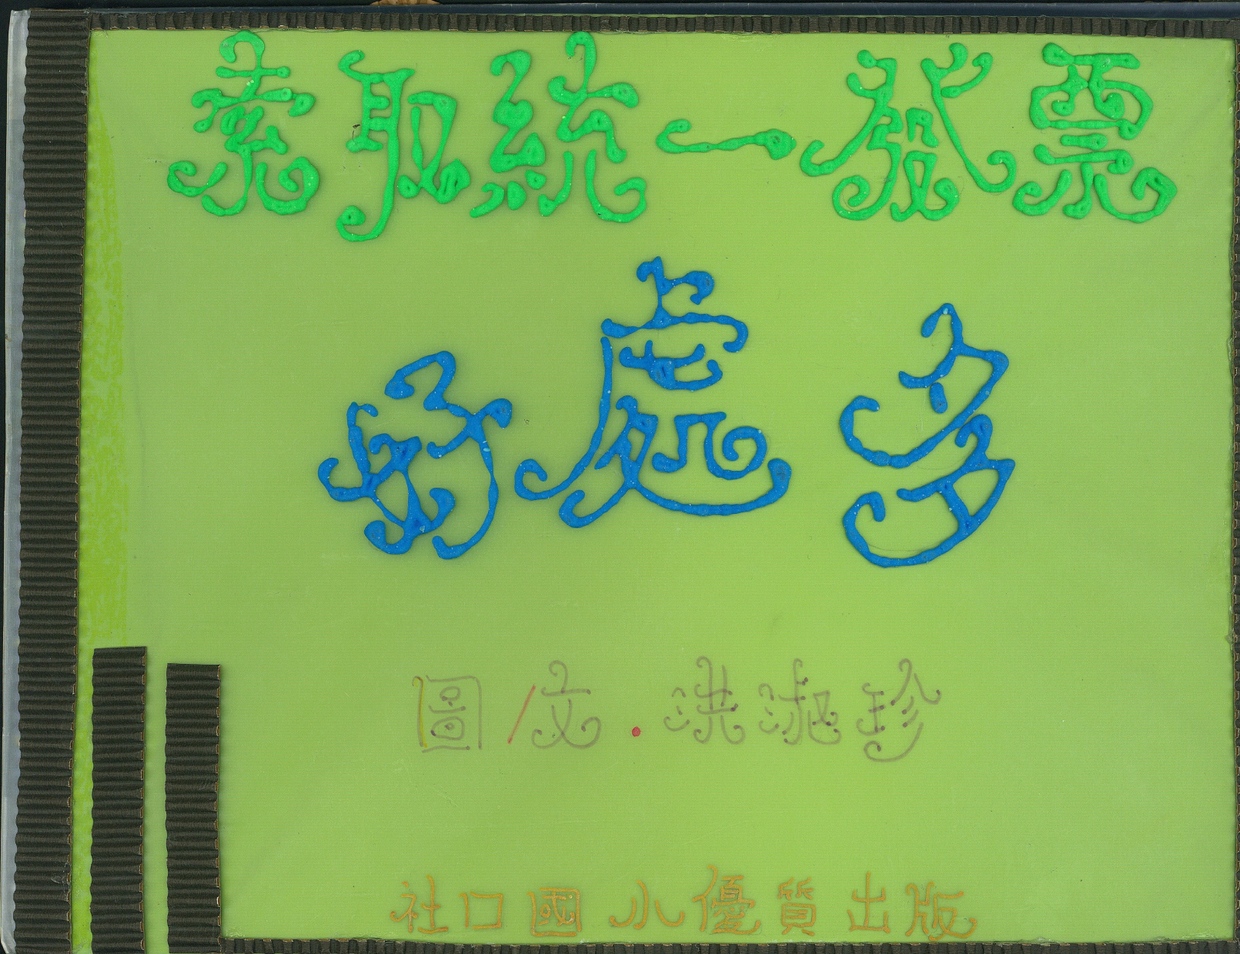 索取統一發票
好處多
圖/文.洪淑珍
社口國小優質出版